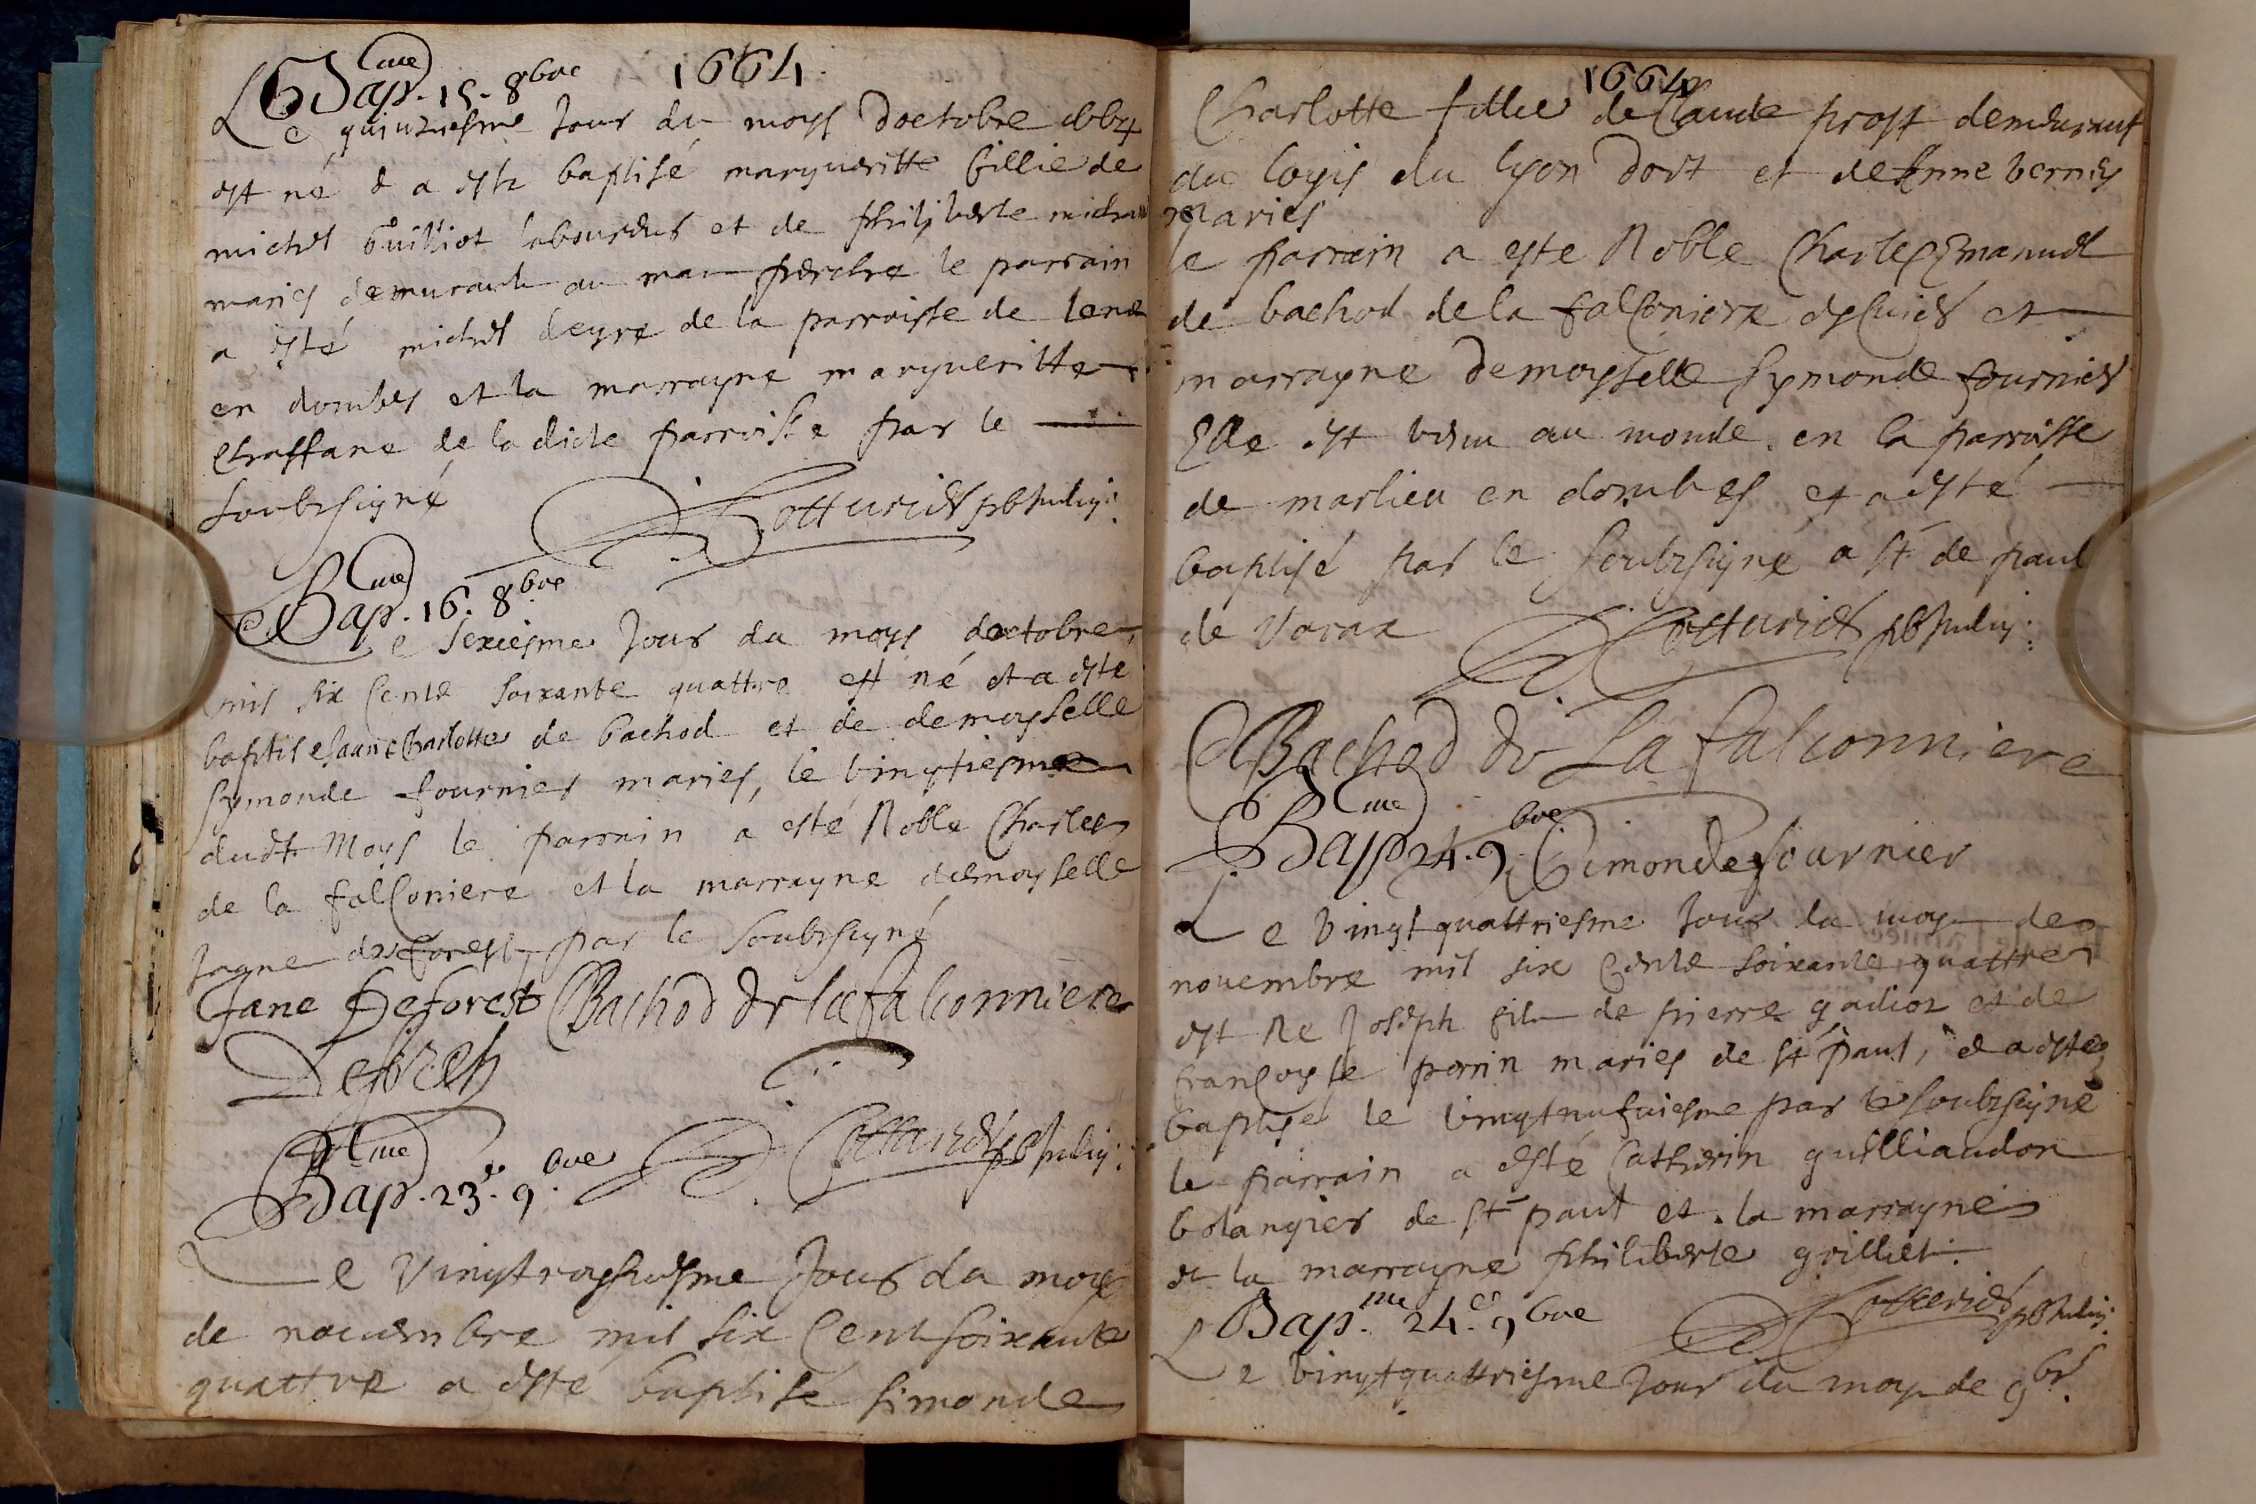 1664
Bap.me 15. 8bre
Le quinziesme Jour du moys doctobre
est né & a este baptisé margueritte fillie de
michel laboureur et de philiberte
maries demurant au le parrain
a esté michel deyre de la parroisse de
en dombes et la marrayne margueritte
de la dicte parroisse par le
soubzsigné
Cotturier pbr
Bap.me 16. 8bre
Le sexiesme Jour du moys doctobre
mil six cente soixante quattre est né et a este
baptise Charlotte de bachod et de demoyselle
symonde fournier maries, le vingtiesme
dudt moys le parrain a esté Noble Charles
de la falconiere et la marrayne demoyselle
Jagne de forest par le soubzsigné
Jane Deforest Bachod de la falconniere
Cotturier pbr
Bap.me 23e. 9bre
Le vingtroyshiesme Jour du moys
de nouembre mil six cent soixante
quattre a esté baptisé simonde
1664
Charlotte fillie de Claude prost demeurant
au logis du lyon dort et de Anne
maries
le parrain a este Noble Charles Emanuel
de bachod de la falconiere escuier et
marrayne demoyselle symonde fournier
Elle est venu au monde en la parroisse
de marlieu en dombes et a esté
baptisé par le soubzsigné a st de paul
de Varax Cotturier pbr
Bachod de La falconniere
Bap.me 24. 9bre Simonde fournier
Le vingt quattriesme Jour du moys de
nouembre mil six cente soixante quattre
est Ne Joseph fils de pierre et de
françoyse perrin maries de st paul, & a este
baptise le par le soubzsigné
le parrain a esté Catherin guilliaudon
bolangier de st paul et la marrayne
et la marrayne philiberte grilliet
Cotturier pbr
Bap.me 24.e 9bre
Le vingt quattriesme Jour du moys de 9br.